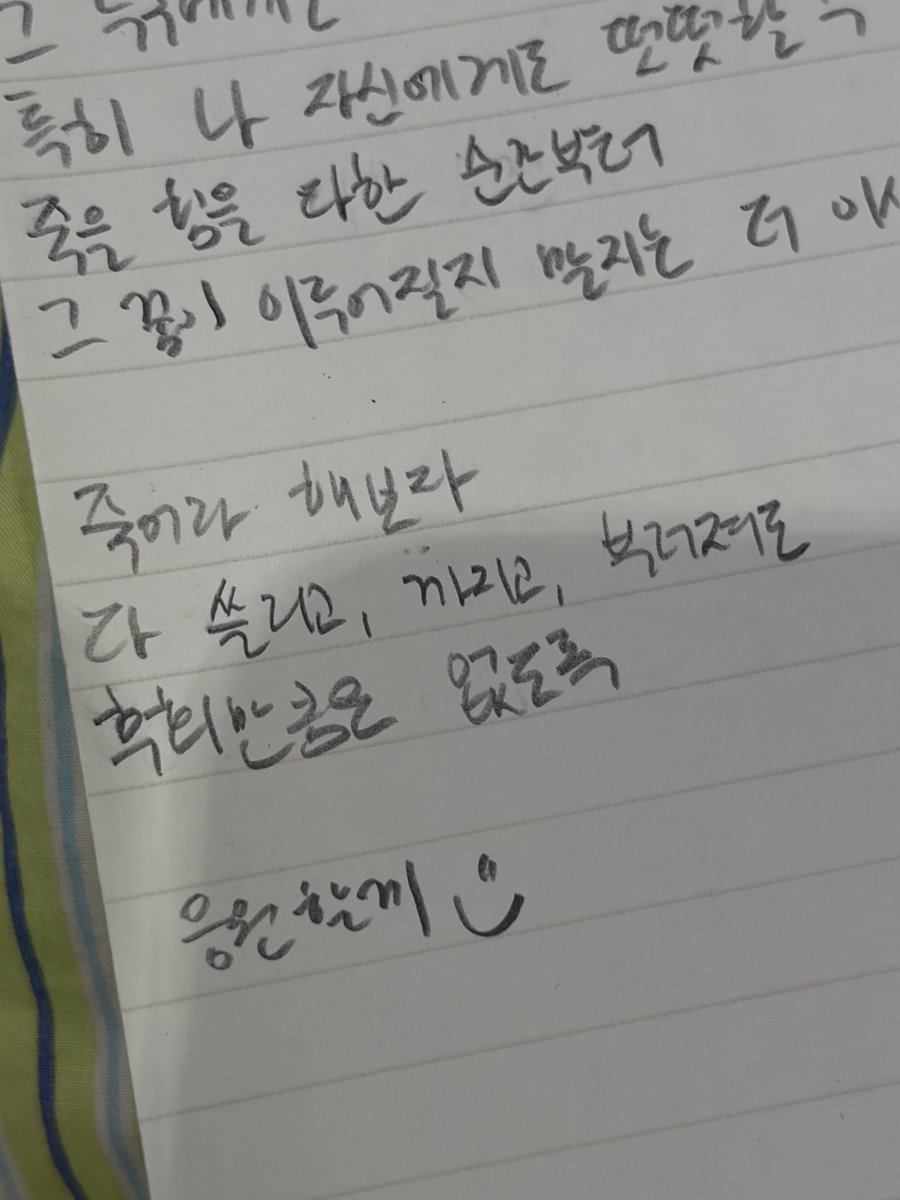 그 누구에게든
특히 나 자신에게도 떳떳할 수
죽을 힘을 다한 순간부터
그 꿈이 이루어질지 말지는 더 이
죽어라 해보자
다 쓸리고, 까지고, 부러져도
후회만큼은 없도록
응원할게 :)